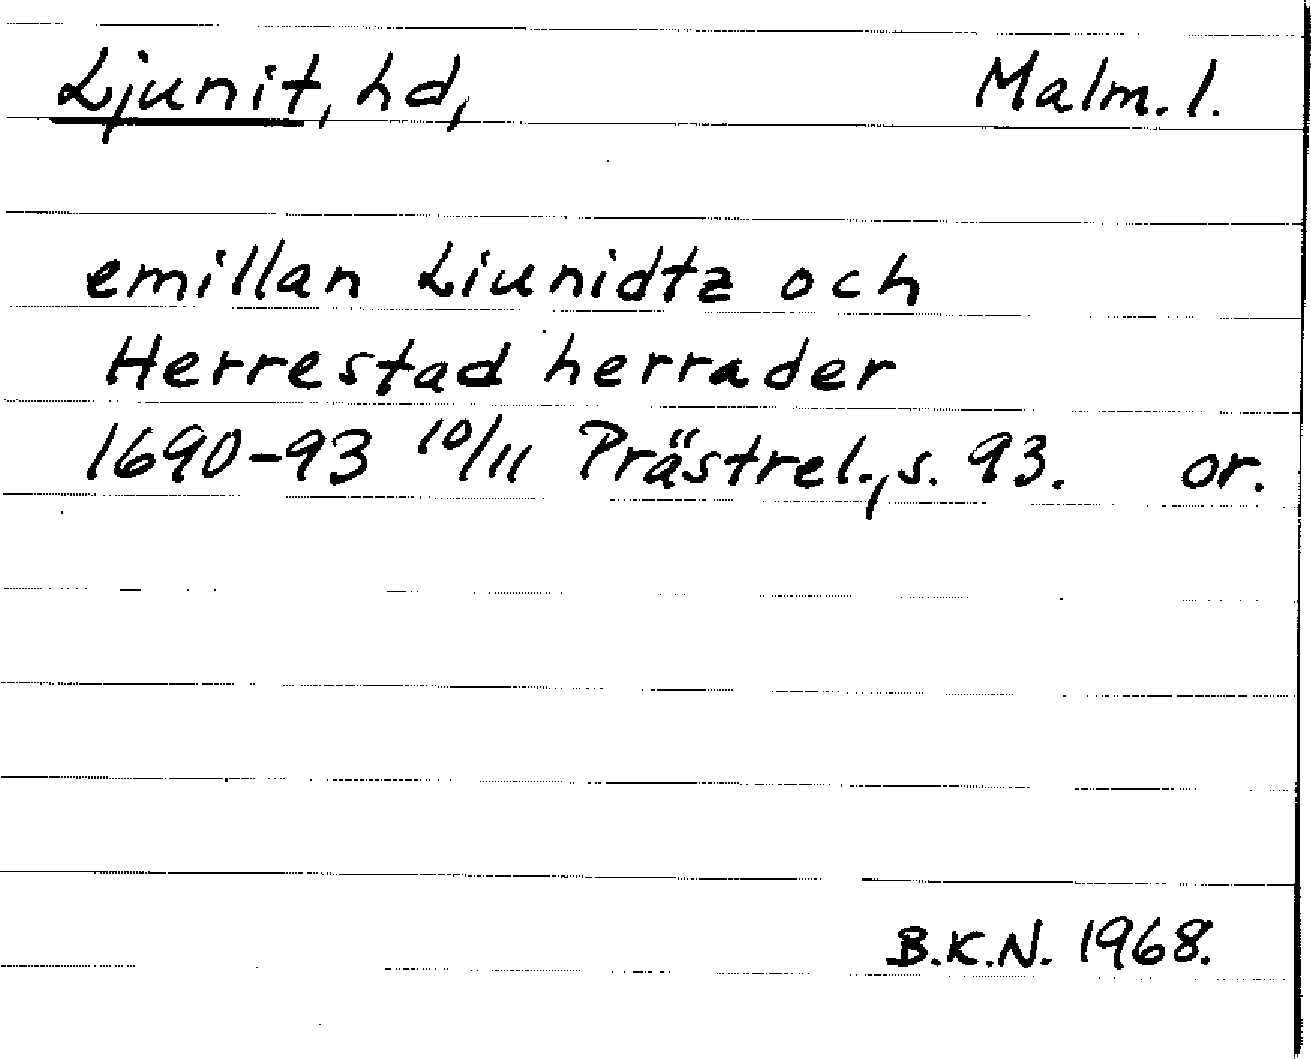 Ljunit, hd, Malm. l.
emillan Liunidtz och
Herrestad herrader
1690-93 10/11 Prästrel., s. 93. or.
B.K.N. 1968.